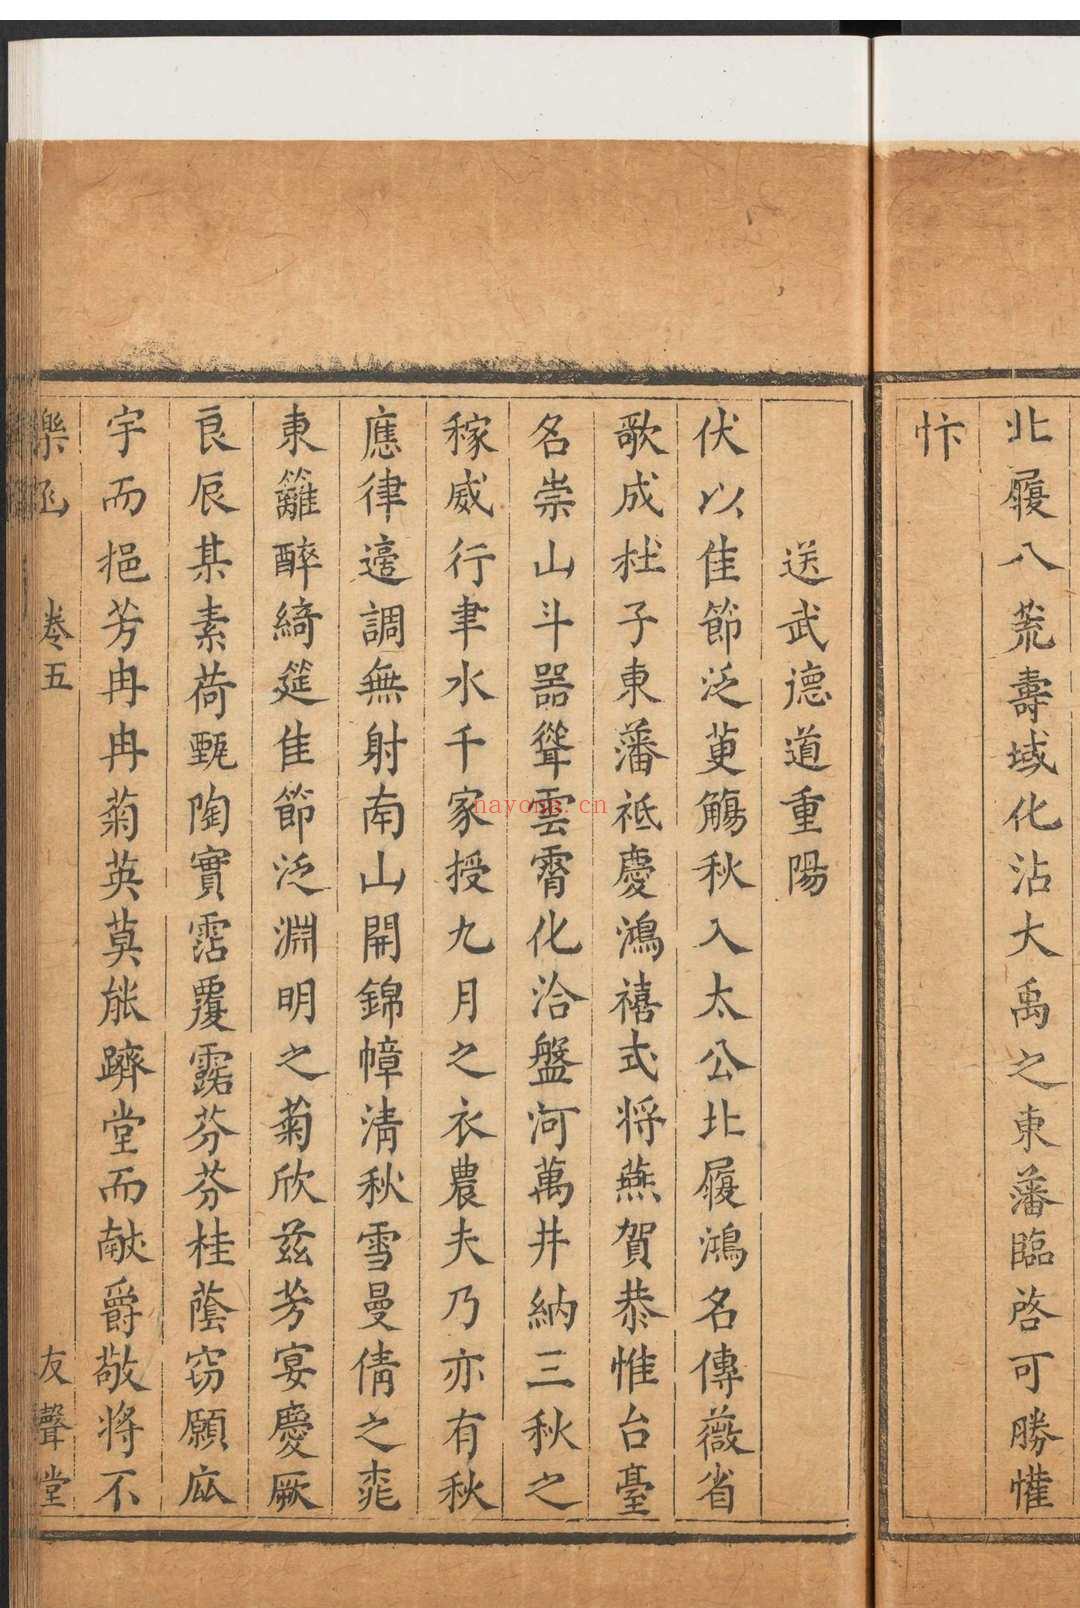 北履八荒壽域化沾大禹之東藩臨啓可勝懽
忭
送武德道重陽
伏以佳節泛萸觴秋入太公北履鴻名傳薇省
歌成杜子東藩祗慶鴻禧式将燕賀恭惟台臺
名崇山斗器聳雲霄化洽盤河萬井納三秋之
稼威行聿水千家授九月之衣農夫乃亦有秋
應律邉調無射南山開錦幛清秋雪曼倩之桃
東籬醉綺筵佳節泛淵明之菊欣兹芳宴慶厥
良辰某素荷甄陶實霑覆露芬芬桂蔭窃願瓜
宇而挹芳冉冉菊英莫能躋堂而献爵敬将不
樂函
卷五
友聲堂
nayona.cn